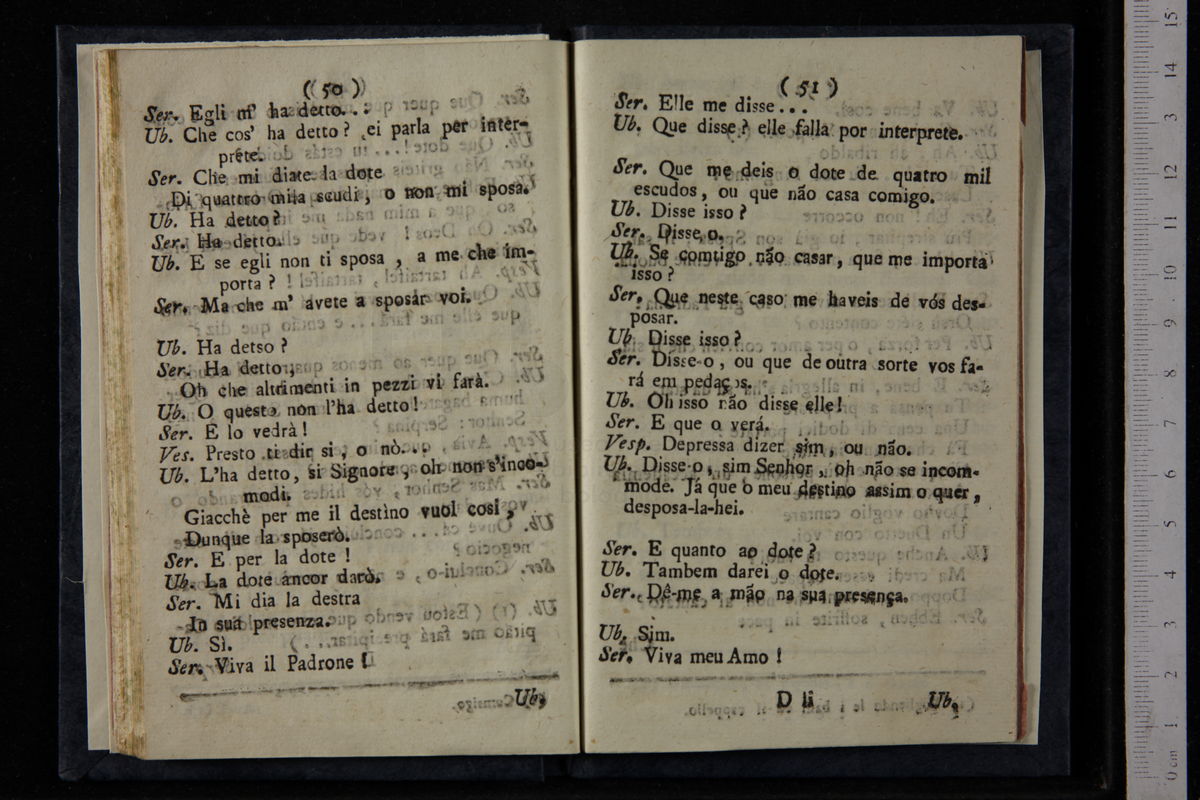 ( 50 )
Ser. Egli m' ha detto...
Ub. Che cos' ha detto? ei parla per inter-
prete.
Ser. Che mi diate la dote
Di quattro mila scudi, o non mi sposa.
Ub. Ha detto?
Ser. Ha detto.
Ub. E se egli non ti sposa, a me che im-
porta?
Ser. Ma che m' avete a sposar voi.
Ub. Ha detso?
Ser. Ha detto;
Oh che altrimenti in pezzi vi farà.
Ub. O questo non l'ha detto!
Ser. E lo vedrà!
Ves. Presto ti dir si, o nò...
Ub. L'ha detto, si Signore, oh non s'inco-
modi.
Giacchè per me il destino vuol cosi,
Dunque la sposerò.
Ser. E per la dote!
Ub. La dote ancor darò.
Ser. Mi dia la destra
In sua presenza.
Ub. Sì.
Ser. Viva il Padrone!
Ub.
( 51 )
Ser. Elle me disse...
Ub. Que disse? elle falla por interprete.
Ser. Que me deis o dote de quatro mil
escudos, ou que não casa comigo.
Ub. Disse isso?
Ser. Disse o.
Ub. Se comtigo não casar, que me importa
isso?
Ser. Que neste caso me haveis de vós des-
posar.
Ub. Disse isso?
Ser. Disse-o, ou que de outra sorte vos fa-
rá em pedaços.
Ub. Oh isso não disse elle!
Ser. E que o verá.
Vesp. Depressa dizer sim, ou não.
Ub. Disse-o, sim Senhor, oh não se incom-
mode. Já que o meu destino assim o quer,
desposa-la-hei.
Ser. E quanto ao dote?
Ub. Tambem darei o dote.
Ser. Dê-me a mão na sua presença.
Ub. Sim.
Ser. Viva meu Amo!
D ii Ub.
0 cm 1 2 3 4 5 6 7 8 9 10 11 12 13 14 15